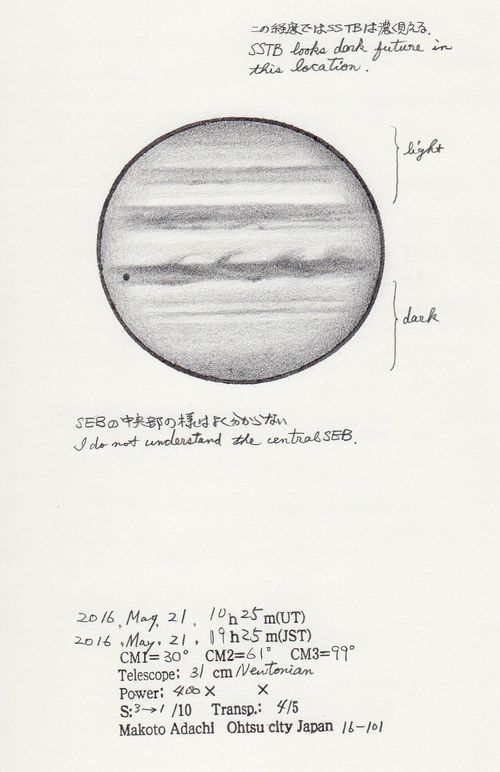 この経度ではSSTBは濃く見える.
SSTB looks dark future in
this location.
light
dark
SEBの中央部の様はよく分からない
I do not understand the central SEB.
2016, May, 21, 10h25m(UT)
2016, May, 21, 19h25m(JST)
CM1=30° CM2=61° CM3=99°
Telescope; 31 cm/Newtonian
Power; 400× ×
S:3→1/10 Transp.: 4/5
Makoto Adachi Ohtsu city Japan 16-101